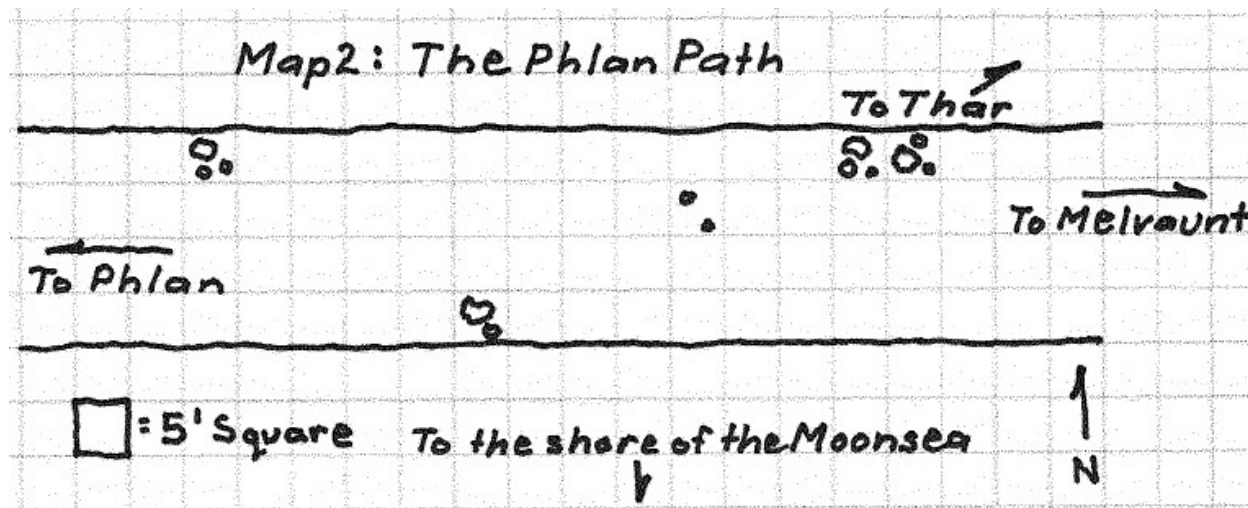 Map2: The Phlan Path
To Thar
To Melvaunt
To Phlan
= 5' Square
To the shore of the Moonsea
N